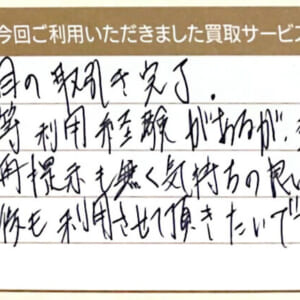 今回ご利用いただきました買取サービス
目の取引き完了.
等利用経験があるが、
再提示も無く気持ちの良い
も利用させて頂きたいで